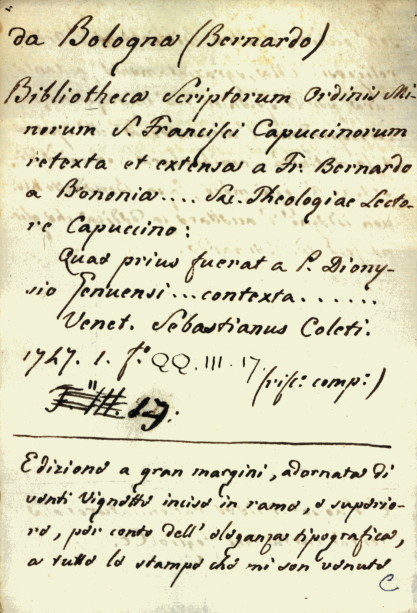 da Bologna (Bernardo)
Bibliotheca Scriptorum Ordinis Mi-
norum S. Francisci Capuccinorum
retexta et extensa a Fr. Bernardo
a Bononia.... Sac. Theologiae Lecto-
re Capuccino:
Quae prius fuerat a P. Diony-
sio Genuensi...contexta......
Venet. Sebastianus Coleti.
1747. 1. f.º QQ. III. 17.
(risc. comp.)
17:
Edizione a gran margini, adornata di
venti vignette incise in rame, e superio-
re, per conto dell' eleganza tipografica,
a tutte le stampe che mi son venute
C